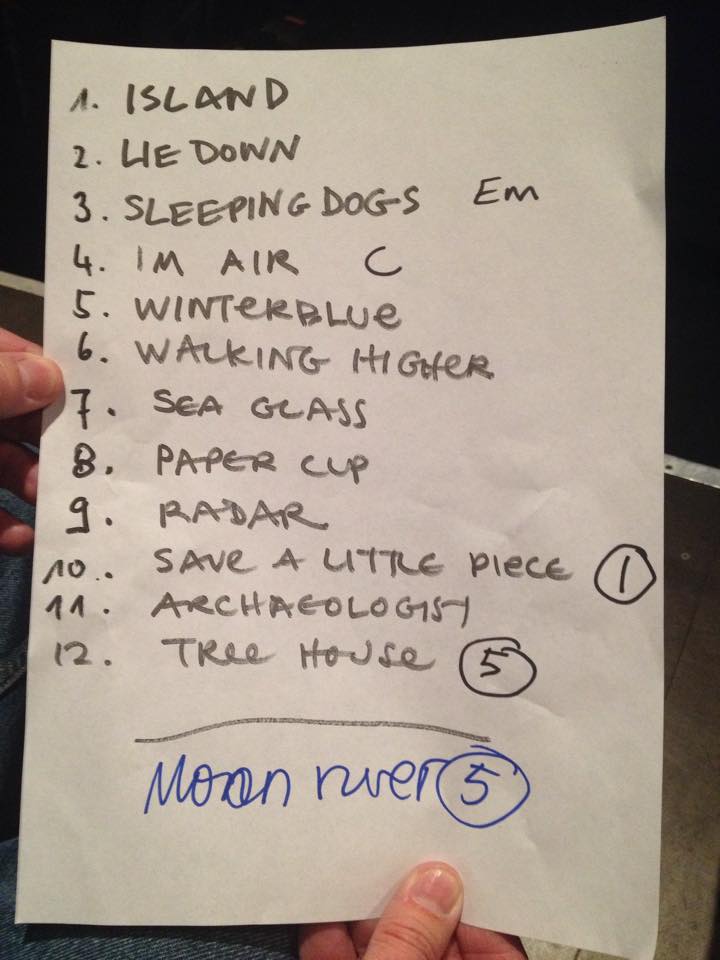 1. ISLAND
2. LIE DOWN
3. SLEEPING DOGS Em
4. IM AIR C
5. WINTERBLUE
6. WALKING HIGHER
7. SEA GLASS
8. PAPER CUP
9. RADAR
10.. SAVE A LITTLE PIECE 1
11. ARCHAEOLOGIST
12. TREE HOUSE 5
Moon river 5